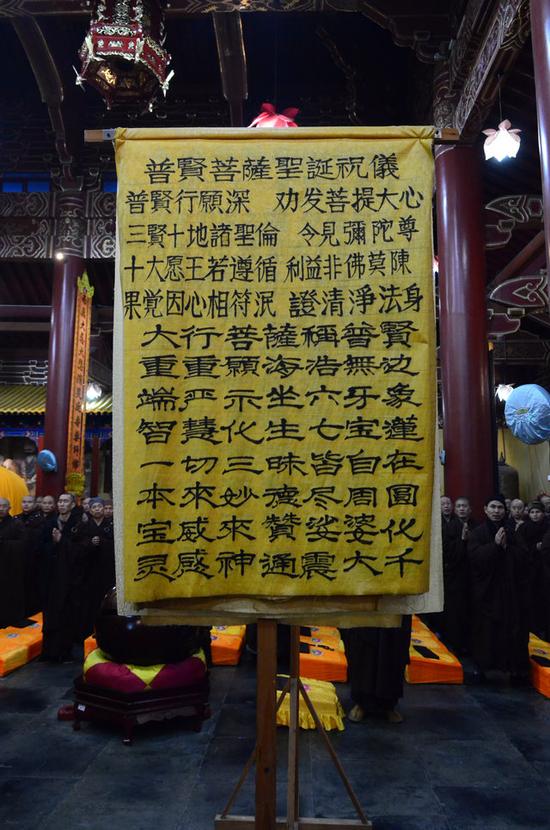 普賢菩薩聖誕祝儀
普賢行願深 劝发菩提大心
三賢十地諸聖倫 令見彌陀尊
十大愿王若遵循 利益非佛莫陳
果覚因心相符泯 證清淨法身
大行菩薩稱普賢
重重願海浩無边
端严示坐六牙象
智慧化生七宝蓮
一切三昧皆自在
本來妙德尽周圓
宝威來贊娑婆化
灵感神通震大千